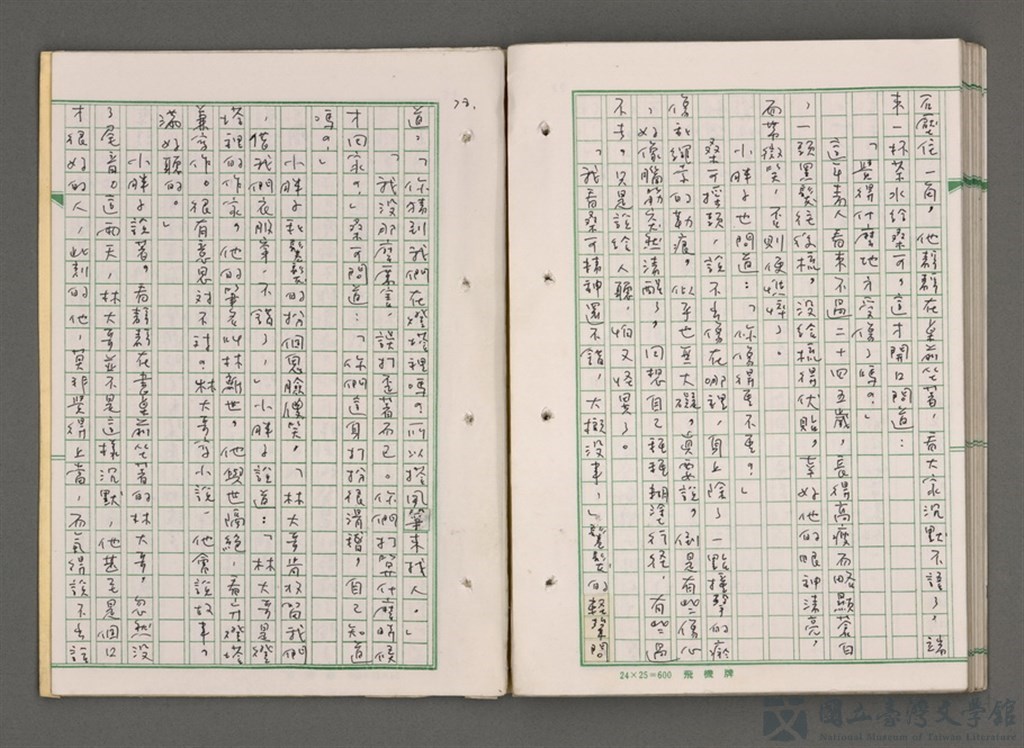 在壓住一角，他靜靜在桌前坐著，看大家沉默不語了，端
來一杯茶水給桑可，這才開口問道：
「覺得什麼地方受傷了嗎？」
這年青人看來不過二十四五歲，長得高瘦而略顯蒼白
，一頭黑髮往後梳，沒給梳得伏貼，幸好他的眼神清亮，
而常微笑，否則便憔悴了。
小胖子也問道：「你傷得重不重？」
桑可搖頭，說不出傷在哪裡，身上除了一點撞擊的瘀
傷和繩索的勒痕，似乎也無大礙，真要說，倒是有些傷心
，好像腦筋突然清醒了，回想自己種種糊塗行徑，有些過
不去。只是說給人聽，怕又怪異了。
「我看桑可精神還不錯，大概沒事，」鬈髮的輕聲問
24×25=600 飛機牌
73.
道，「你猜到我們在燈塔裡嗎？所以撿風箏來找人。」
「我沒那麼厲害，誤打歪著而已。你們打算什麼時候
才回家？」桑可問道：「你們這身打扮很滑稽，自己知道
嗎？」
小胖子和鬈髮的扮個鬼臉傻笑，「林大哥肯收留我們
，借我們衣服穿，不錯了，」小胖子說道：「林大哥是燈
塔裡的作家，他的筆名叫林新世，他與世隔絕，看守燈塔
兼寫作。很有意思對不對？林大哥寫小說，他會說故事，
滿好聽的。」
小胖子說著，看靜靜在書桌前坐著的林大哥，忽然沒
了尾音。這兩天，林大哥並不是這樣沉默，他甚至是個口
才很好的人，此刻的他，莫非覺得上當，而氣得說不出話
國立臺灣文學館
National Museum of Taiwan Literature